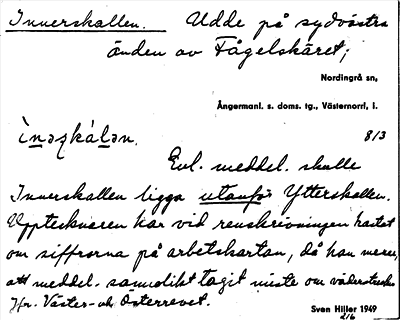 Innerskallen. Udde på sydvästra
änden av Fågelskäret;
Nordingrå sn,
Ångermanl. s. doms. tg., Västernorrl. l.
ìnəʐkálən. 8/3
Enl. meddel. skulle
Innerskallen ligga utanför Ytterskallen.
Uppteckaren har vid renskrivningen kastat
om siffrorna på arbetskartan, då han menar,
att meddel. sannolikt tagit miste om väderstrecken
Jfr. Väster- och Österrevet.
Sven Hiller 1949
2/6